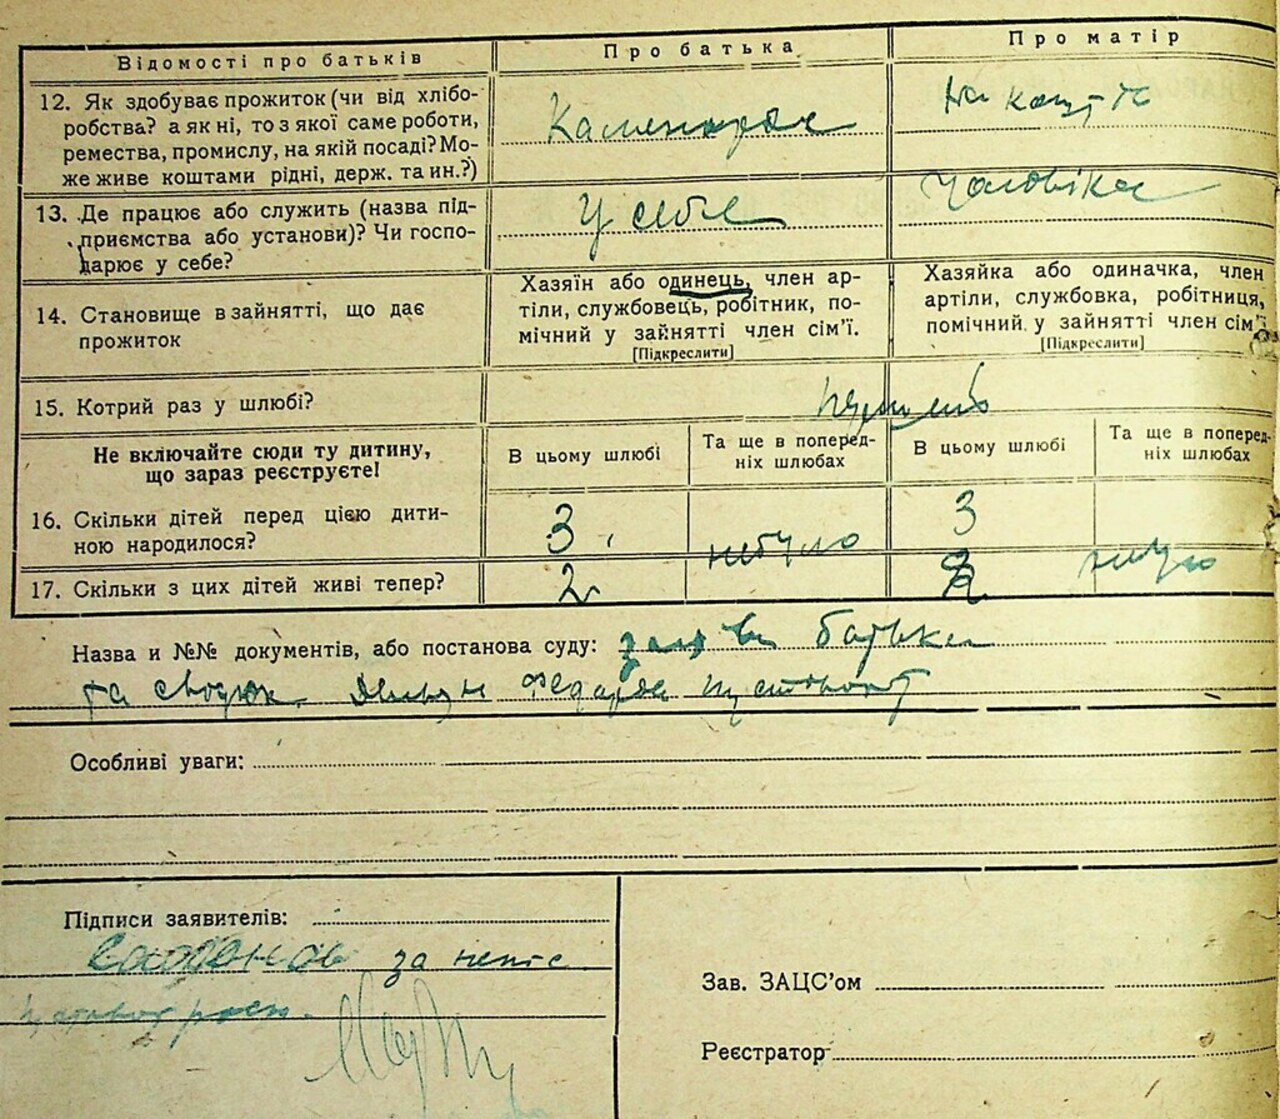 Відомості про батьків
Про батька
Про матір
12. Як здобуває прожиток (чи від хлібо-
робства? а як ні, то з якої саме роботи,
ремества, промислу, на якій посаді? Мо-
же живе коштами рідні, держ. та ин.?)
Каменяр
на кошти
13. Де працює або служить (назва під-
приємства або установи)? Чи госпо-
дарює у себе?
у себе
чоловіка
14. Становище в зайнятті, що дає
прожиток
Хазяїн або одинець, член ар-
тіли, службовець, робітник, по-
мічний у зайнятті член сім'ї.
[Підкреслити]
Хазяйка або одиначка, член
артіли, службовка, робітниця,
помічний у зайнятті член сім'ї.
[Підкреслити]
15. Котрий раз у шлюбі?
Не включайте сюди ту дитину,
що зараз реєструєте!
В цьому шлюбі
Та ще в поперед-
ніх шлюбах
В цьому шлюбі
Та ще в поперед-
ніх шлюбах
16. Скільки дітей перед цією дити-
ною народилося?
3
небуло
3
небуло
17. Скільки з цих дітей живі тепер?
2
2
Назва и №№ документів, або постанова суду: заява батька
та
Особливі уваги:
Підписи заявителів:
за непис
Зав. ЗАЦС'ом
Реєстратор